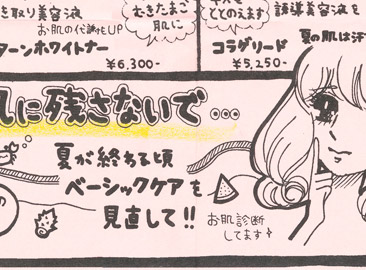 き取り美容液
お肌の代謝をUP
ターンホワイトナー
¥6,300-
むきたまご
肌に
ととのえます
誘導美容液を
コラゲリード
¥5,250-
夏の肌は汗
肌に残さないで…
夏が終わる頃
ベーシックケアを
見直して!!
お肌診断
してます
の